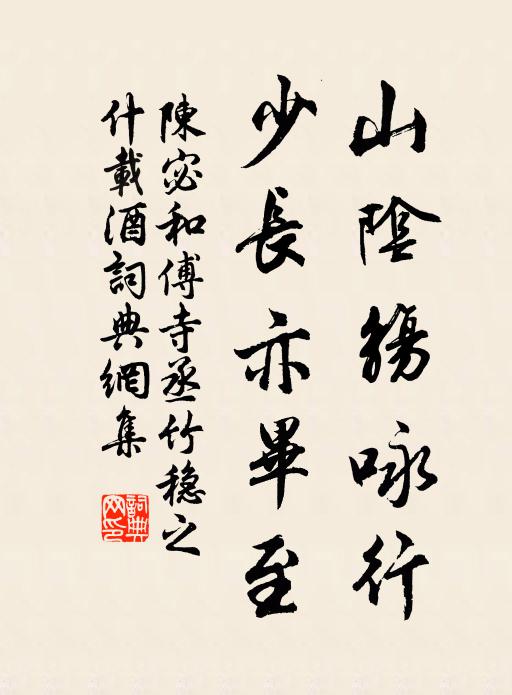 山陰觴咏行
少長亦畢至
陳宓和傅寺丞竹穏之
什載酒詞典網集
詞典网印